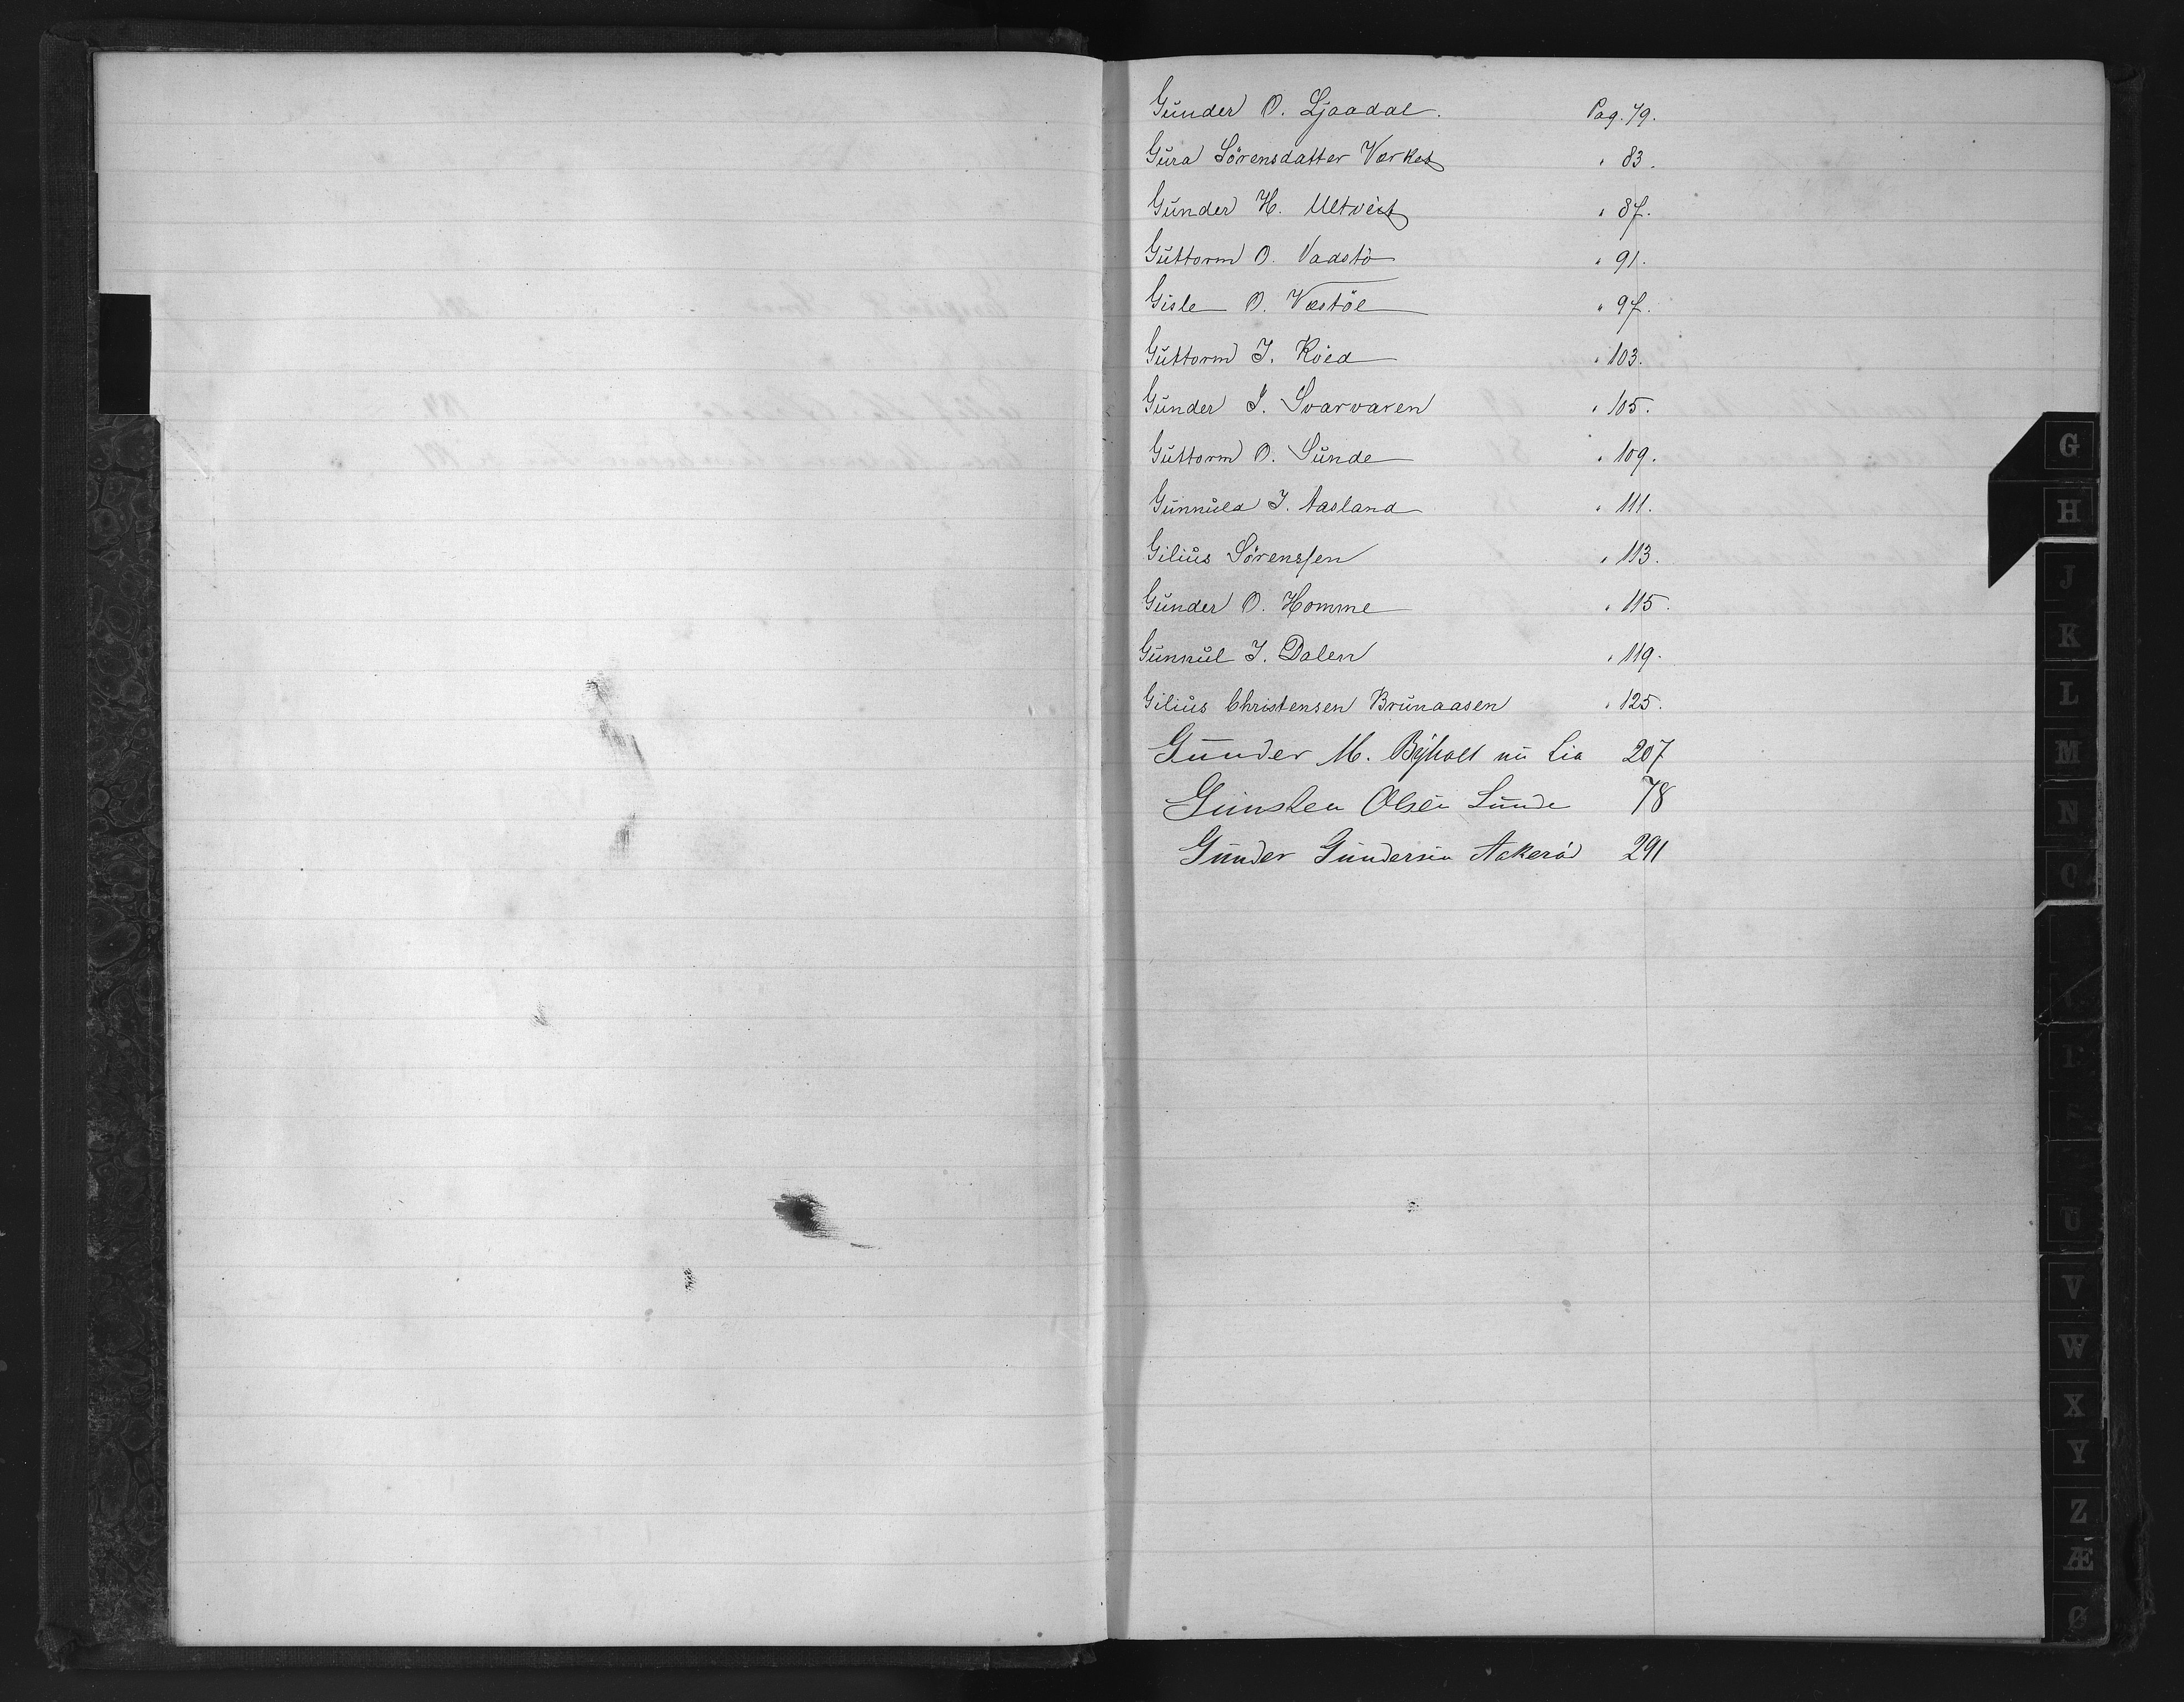 Gunder O. Ljaadal. Pag. 79.
Gura Sörensdatter Værket " 83.
Gunder H. Ultveit " 87.
Guttorm O. Vadstö " 91.
Gisle O. Væstöl " 97.
Guttorm J. Röed " 103.
Gunder J. Svarvaren " 105.
Guttorm O. Sunde " 109.
Gunnuld J. Aasland " 111.
Gilius Sörenssen " 113.
Gunder O. Homme " 115.
Gunnul J. Dalen " 119.
Gilius Christensen Brunaasen " 125.
Gunder M. Byholt nu Lia 207
Gunsten Olsen Lunde 78
Gunder Gundersen Aakerød 291
G
H
J
K
L
M
N
O
U
V
W
X
Y
Z
Æ
Ø